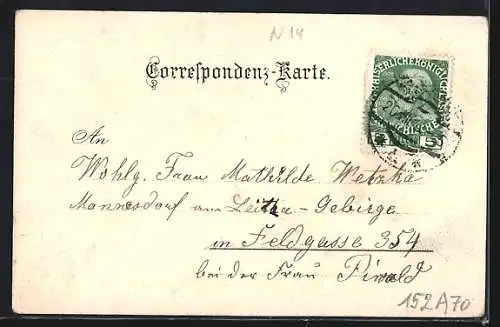 N14
Correspondenz-Karte.
KAISERLICHE KÖNIGLICHE
5
An
Wohlg. Frau Mathilde Wetzka
Mannesdorf am Leitha-Gebirge
in Feldgasse 354
bei der Frau Piwald
152A70